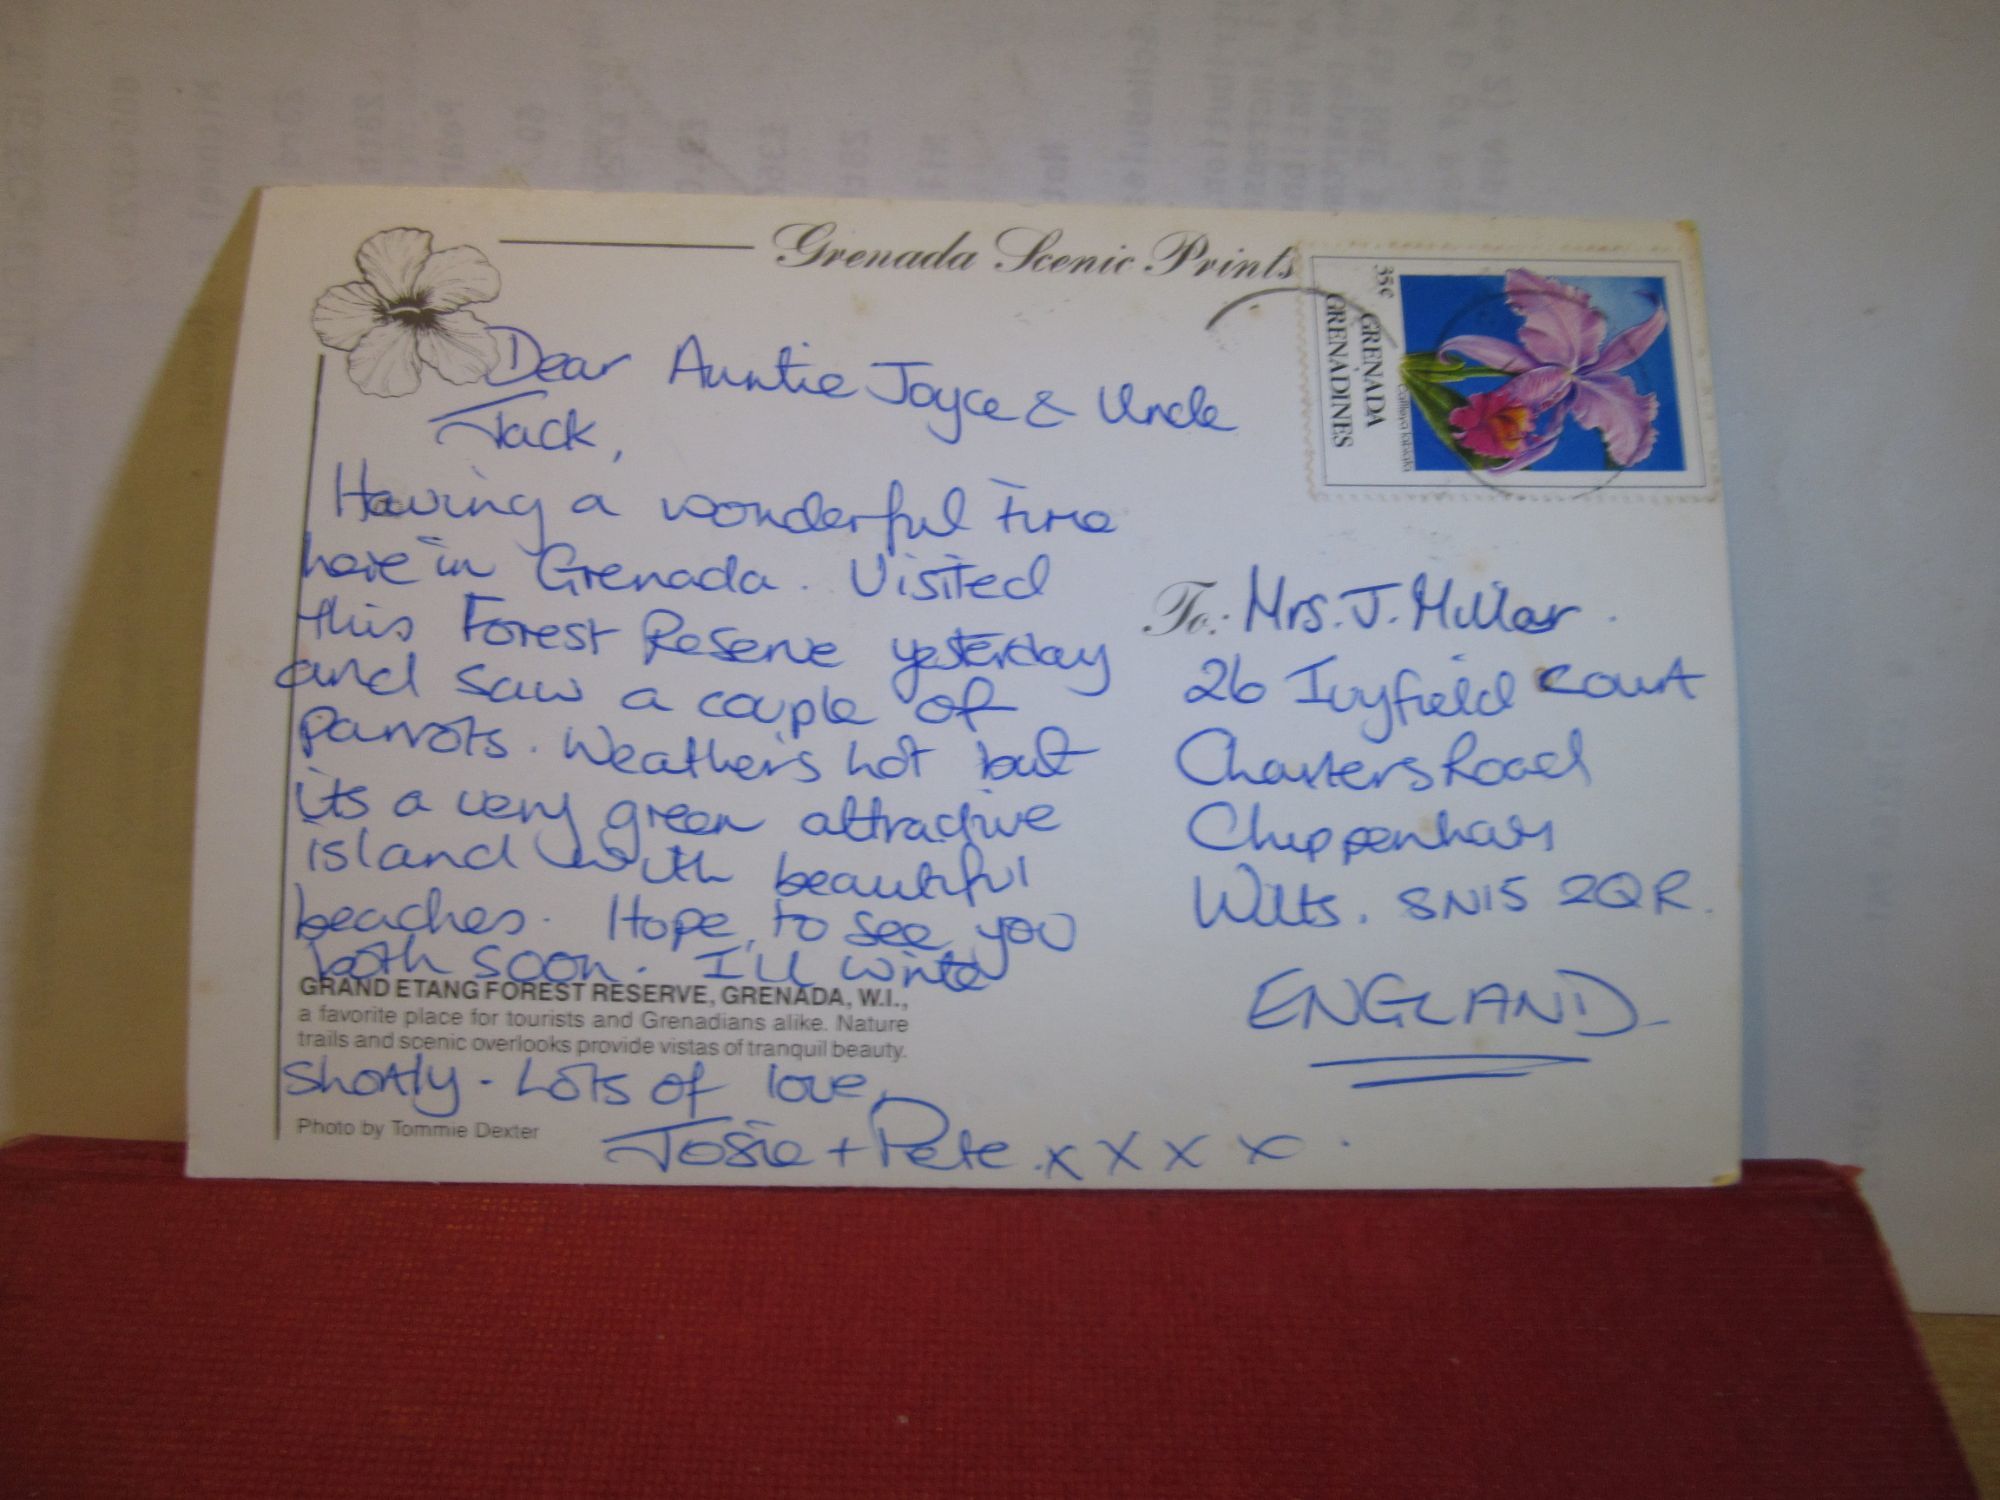 Grenada Scenic Prints
35c
GRENADA
GRENADINES
Cattleya labiata
Dear Auntie Joyce & Uncle
Jack,
Having a wonderful time
here in Grenada. Visited
this Forest Reserve yesterday
and saw a couple of
parrots. Weather's hot but
its a very green attractive
island with beautiful
beaches. Hope to see you
both soon. I'll write
GRAND ETANG FOREST RESERVE, GRENADA, W.I.,
a favorite place for tourists and Grenadians alike. Nature
trails and scenic overlooks provide vistas of tranquil beauty.
shortly - Lots of love,
Photo by Tommie Dexter
Josie + Pete . x x x x .
To: Mrs. J. Millar.
26 Ivyfield Court
Charters Road
Chippenham
Wilts. SN15 2QR.
ENGLAND